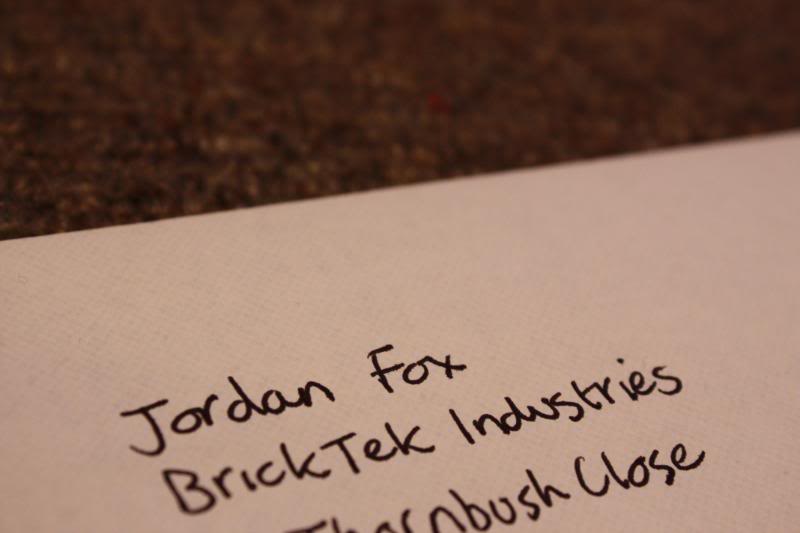 Jordan Fox
BrickTek Industries
Thornbush Close